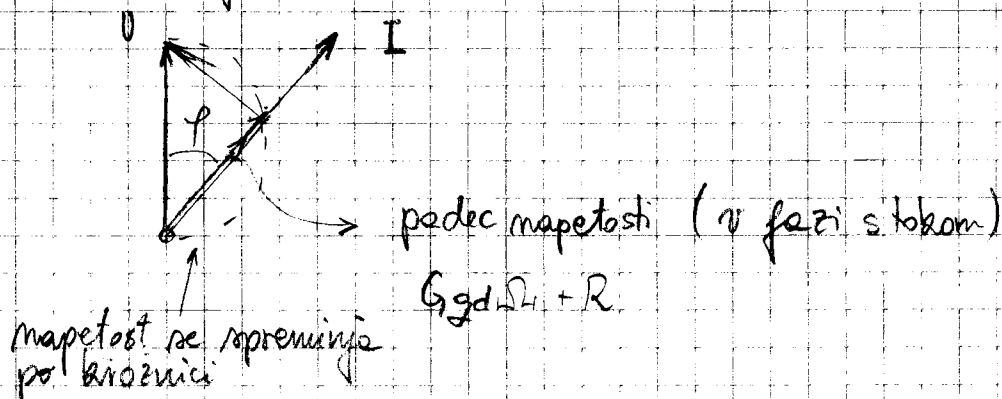 U
I
φ
padec napetosti (v fazi s tokom)
+ R
napetost se spreminja
po krožnici